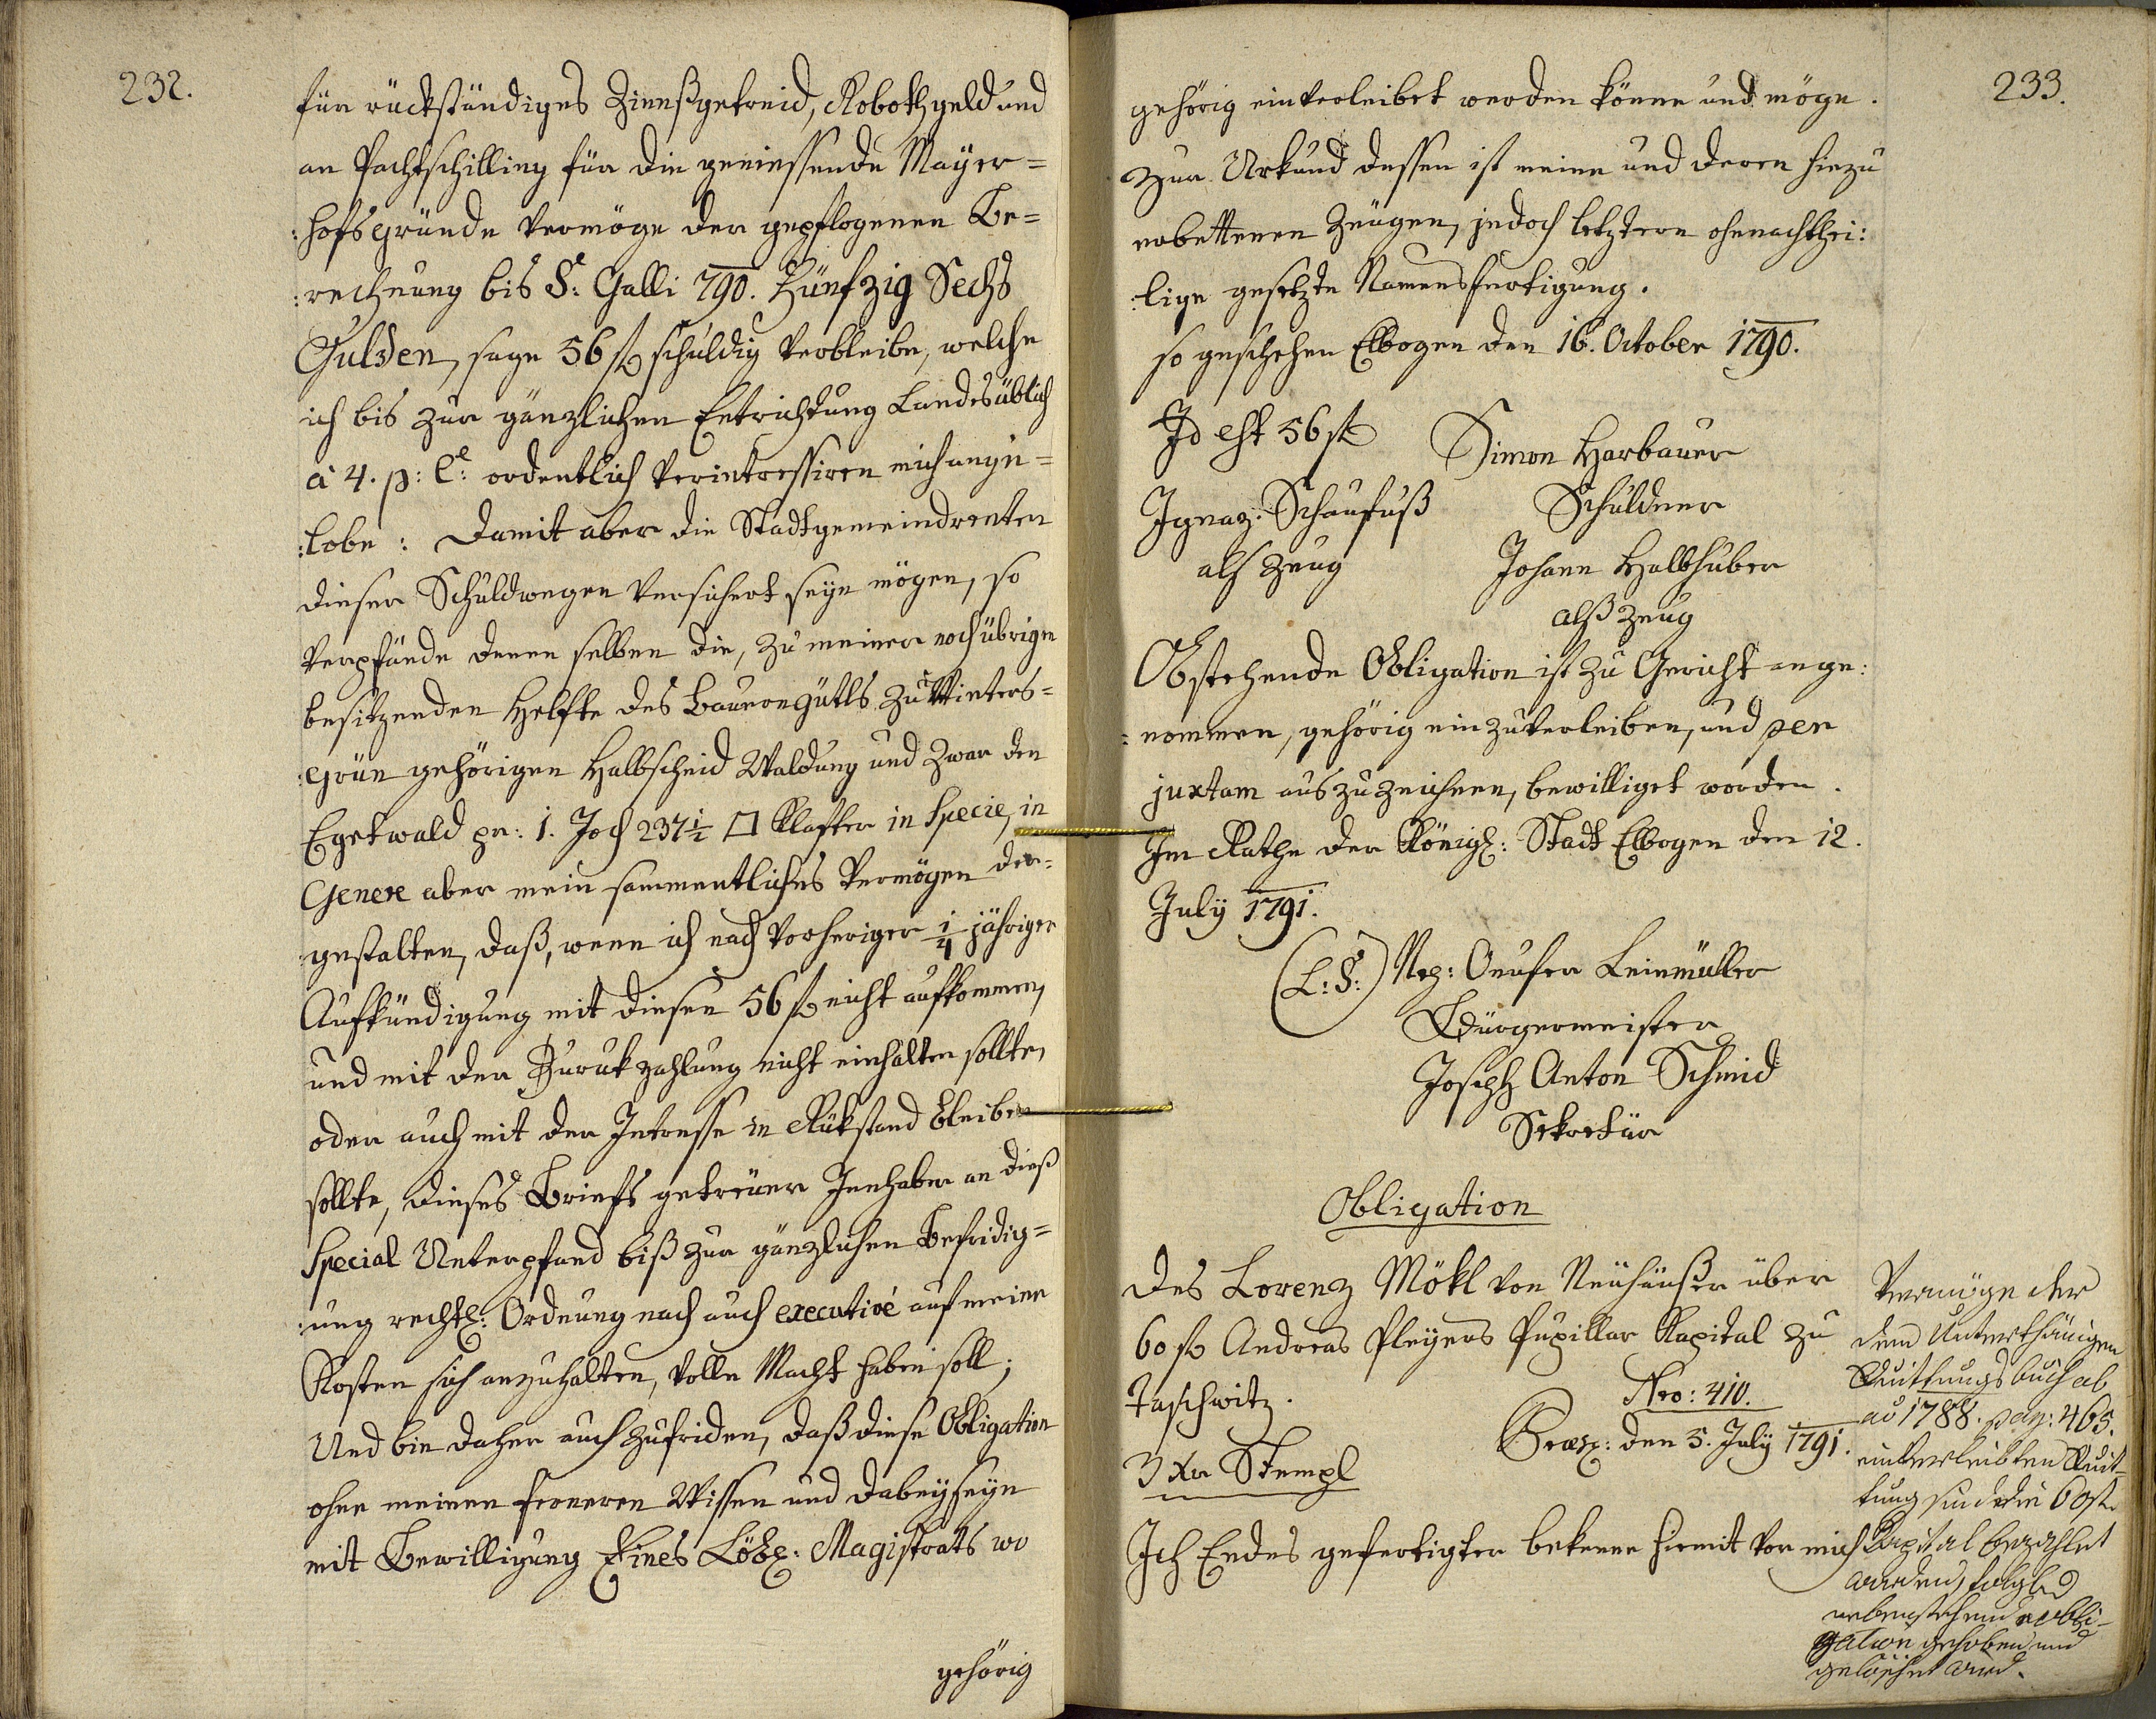 232.
für rückständiges Zinnßgetreid, Robothgeld und
an Pachtschilling für die geniessende Mayer=
:hofsgründe vermöge der gepflogenen Be=
:rechnung bis S: Galli 790. Fünfzig Sechs
Gulden, sage 56 fl schuldig verbleibe, welche
ich bis zur gänzlichen Entrichtung Landesüblich
à 4. p: C: ordentlich verintressiren mich ange=
:lobe: Damit aber die Stadtgemeindrenten
dieser Schuldwegen versichert seyn mögen, so
verpfände denen selben die, zu meiner noch übrigen
besitzenden Helfte des Bauerngütls zu Winters=
:grün gehörigen Halbscheid Waldung und zwar den
Egetwald pr: 1. Joch 237 1/2 □ Klafter in Specie, in
Genere aber mein sammentliches Vermögen der=
gestalten, daß, wenn ich nach vorheriger 1/4 jähriger
Aufkündigung mit diesen 56 fl nicht aufkommen,
und mit der Zurukzahlung nicht einhalten sollte,
oder auch mit der Intresse in Rükstand bleiben
sollte, dieses Briefs getreuer Innhaber an dieß
Special Unterpfand biß zur gänzlichen Befridig=
:ung rechtl: Ordnung nach auch executivé auf meine
Kosten sich anzuhalten, volle Macht haben soll;
Und bin daher auch zufriden, daß diese Obligation
ohne meinen ferneren Wissen und dabeyseyn
mit Bewilligung Eines Löbl: Magistrats wo
gehörig
233.
gehörig einverleibet werden könne und möge.
Zur Urkund dessen ist meine und deren hiezu
erbettenen Zeugen, jedoch letztern ohnnachthei:
:lige gesetzte Namensfertigung.
so geschehen Elbogen den 16. October 1790.
Id est 56 fl
Simon Harbauer
Schuldner
Ignaz Schaufuß
als Zeug
Johann Halbhuber
alß Zeug
Obstehende Obligation ist zu Gericht ange:
:nommen, gehörig einzuverleiben, und per
juxtam auszuzeichnen, bewilliget worden.
Im Rathe der Königl: Stadt Elbogen den 12.
July 1791.
(L: S:) Leinmüller
Bürgermeister
Joseph Anton Schmid
Sekretär
Obligation
des Lorenz Mökl von Neuhäußer über
60 fl Andreas Pleyers Pupillar Kapital zu
Taschwitz.
Nro: 410.
3 Xr Stempl
Præs: den 5. July 1791.
Ich Endes gefertigter bekenne hiemit vor mich
Vermöge der
dem Unterthänigen
Quittungsbuch ab
ao 1788. pag: 465.
einverleibten Quit-
tung sind die 60 fl
Kapital bezahlet
worden, folgl:
nebenstehende obli-
gation gehoben und
gelöschet wird.